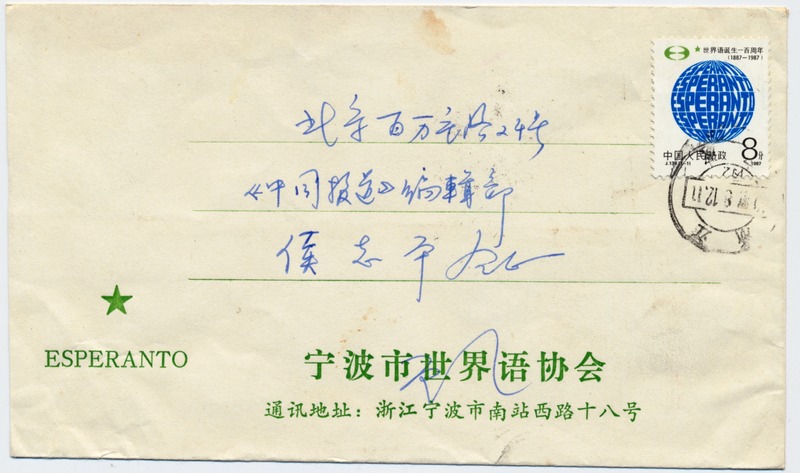 世界语诞生一百周年
(1887-1987)
ESPERANTO
ESPERANTO
ESPERANTO
中国人民邮政
8分
1987
北京百万庄路24号
《中国报道》编辑部
侯志平
ESPERANTO
宁波市世界语协会
通讯地址：浙江宁波市南站西路十八号